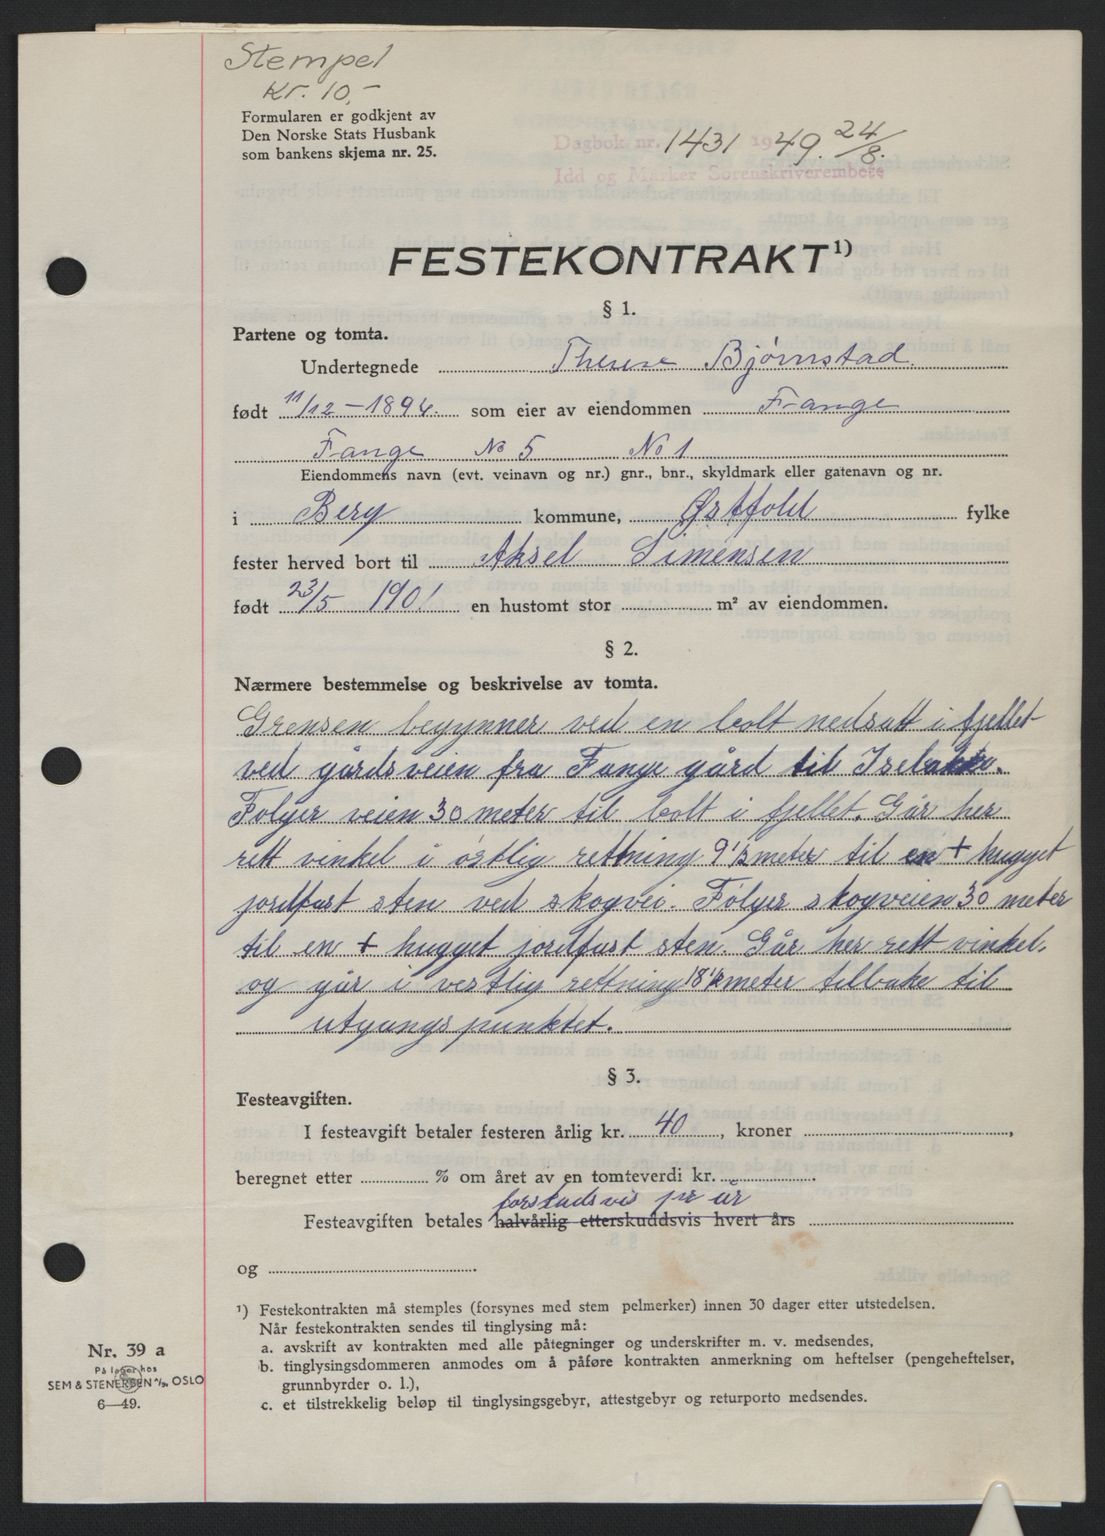 Stempel
Kr. 10,-
Formularen er godkjent av
Den Norske Stats Husbank
som bankens skjema nr. 25.
Dagbok nr. 1431 1949. 24/8.
Idd og Marker Sorenskriverembete
FESTEKONTRAKT¹)
§ 1.
Partene og tomta.
Undertegnede Therese Bjørnstad.
født 11/12-1894. som eier av eiendommen Frange
Fange No 5 No 1
Eiendommens navn (evt. veinavn og nr.) gnr., bnr., skyldmark eller gatenavn og nr.
i Berg kommune, Østfold fylke
fester herved bort til Aksel Simensen
født 23/5 1901 en hustomt stor m² av eiendommen.
§ 2.
Nærmere bestemmelse og beskrivelse av tomta.
Grensen begynner ved en bolt nedsatt i fjellet
ved gårdsveien fra Fange gård til Isebakke.
Følger veien 30 meter til bolt i fjellet. Går her
rett vinkel i østlig rettning 9 1/2 meter til en + hugget
jordfast sten ved skogvei. Følger skogveien 30 meter
til en + hugget jordfast sten. Går her rett vinkel.
og går i vestlig rettning 18 1/2 meter tilbake til
utgangspunktet.
§ 3.
Festeavgiften.
I festeavgift betaler festeren årlig kr. 40, kroner ,
beregnet etter % om året av en tomteverdi kr. .
forskudsvis pr år
Festeavgiften betales halvårlig etterskuddsvis hvert års
og
¹) Festekontrakten må stemples (forsynes med stem pelmerker) innen 30 dager etter utstedelsen.
Når festekontrakten sendes til tinglysing må:
a. avskrift av kontrakten med alle påtegninger og underskrifter m. v. medsendes,
b. tinglysingsdommeren anmodes om å påføre kontrakten anmerkning om heftelser (pengeheftelser,
grunnbyrder o. l.),
c. et tilstrekkelig beløp til tinglysingsgebyr, attestgebyr og returporto medsendes.
Nr. 39 a
På lager hos
SEM & STENERSEN A/S, OSLO
6—49.